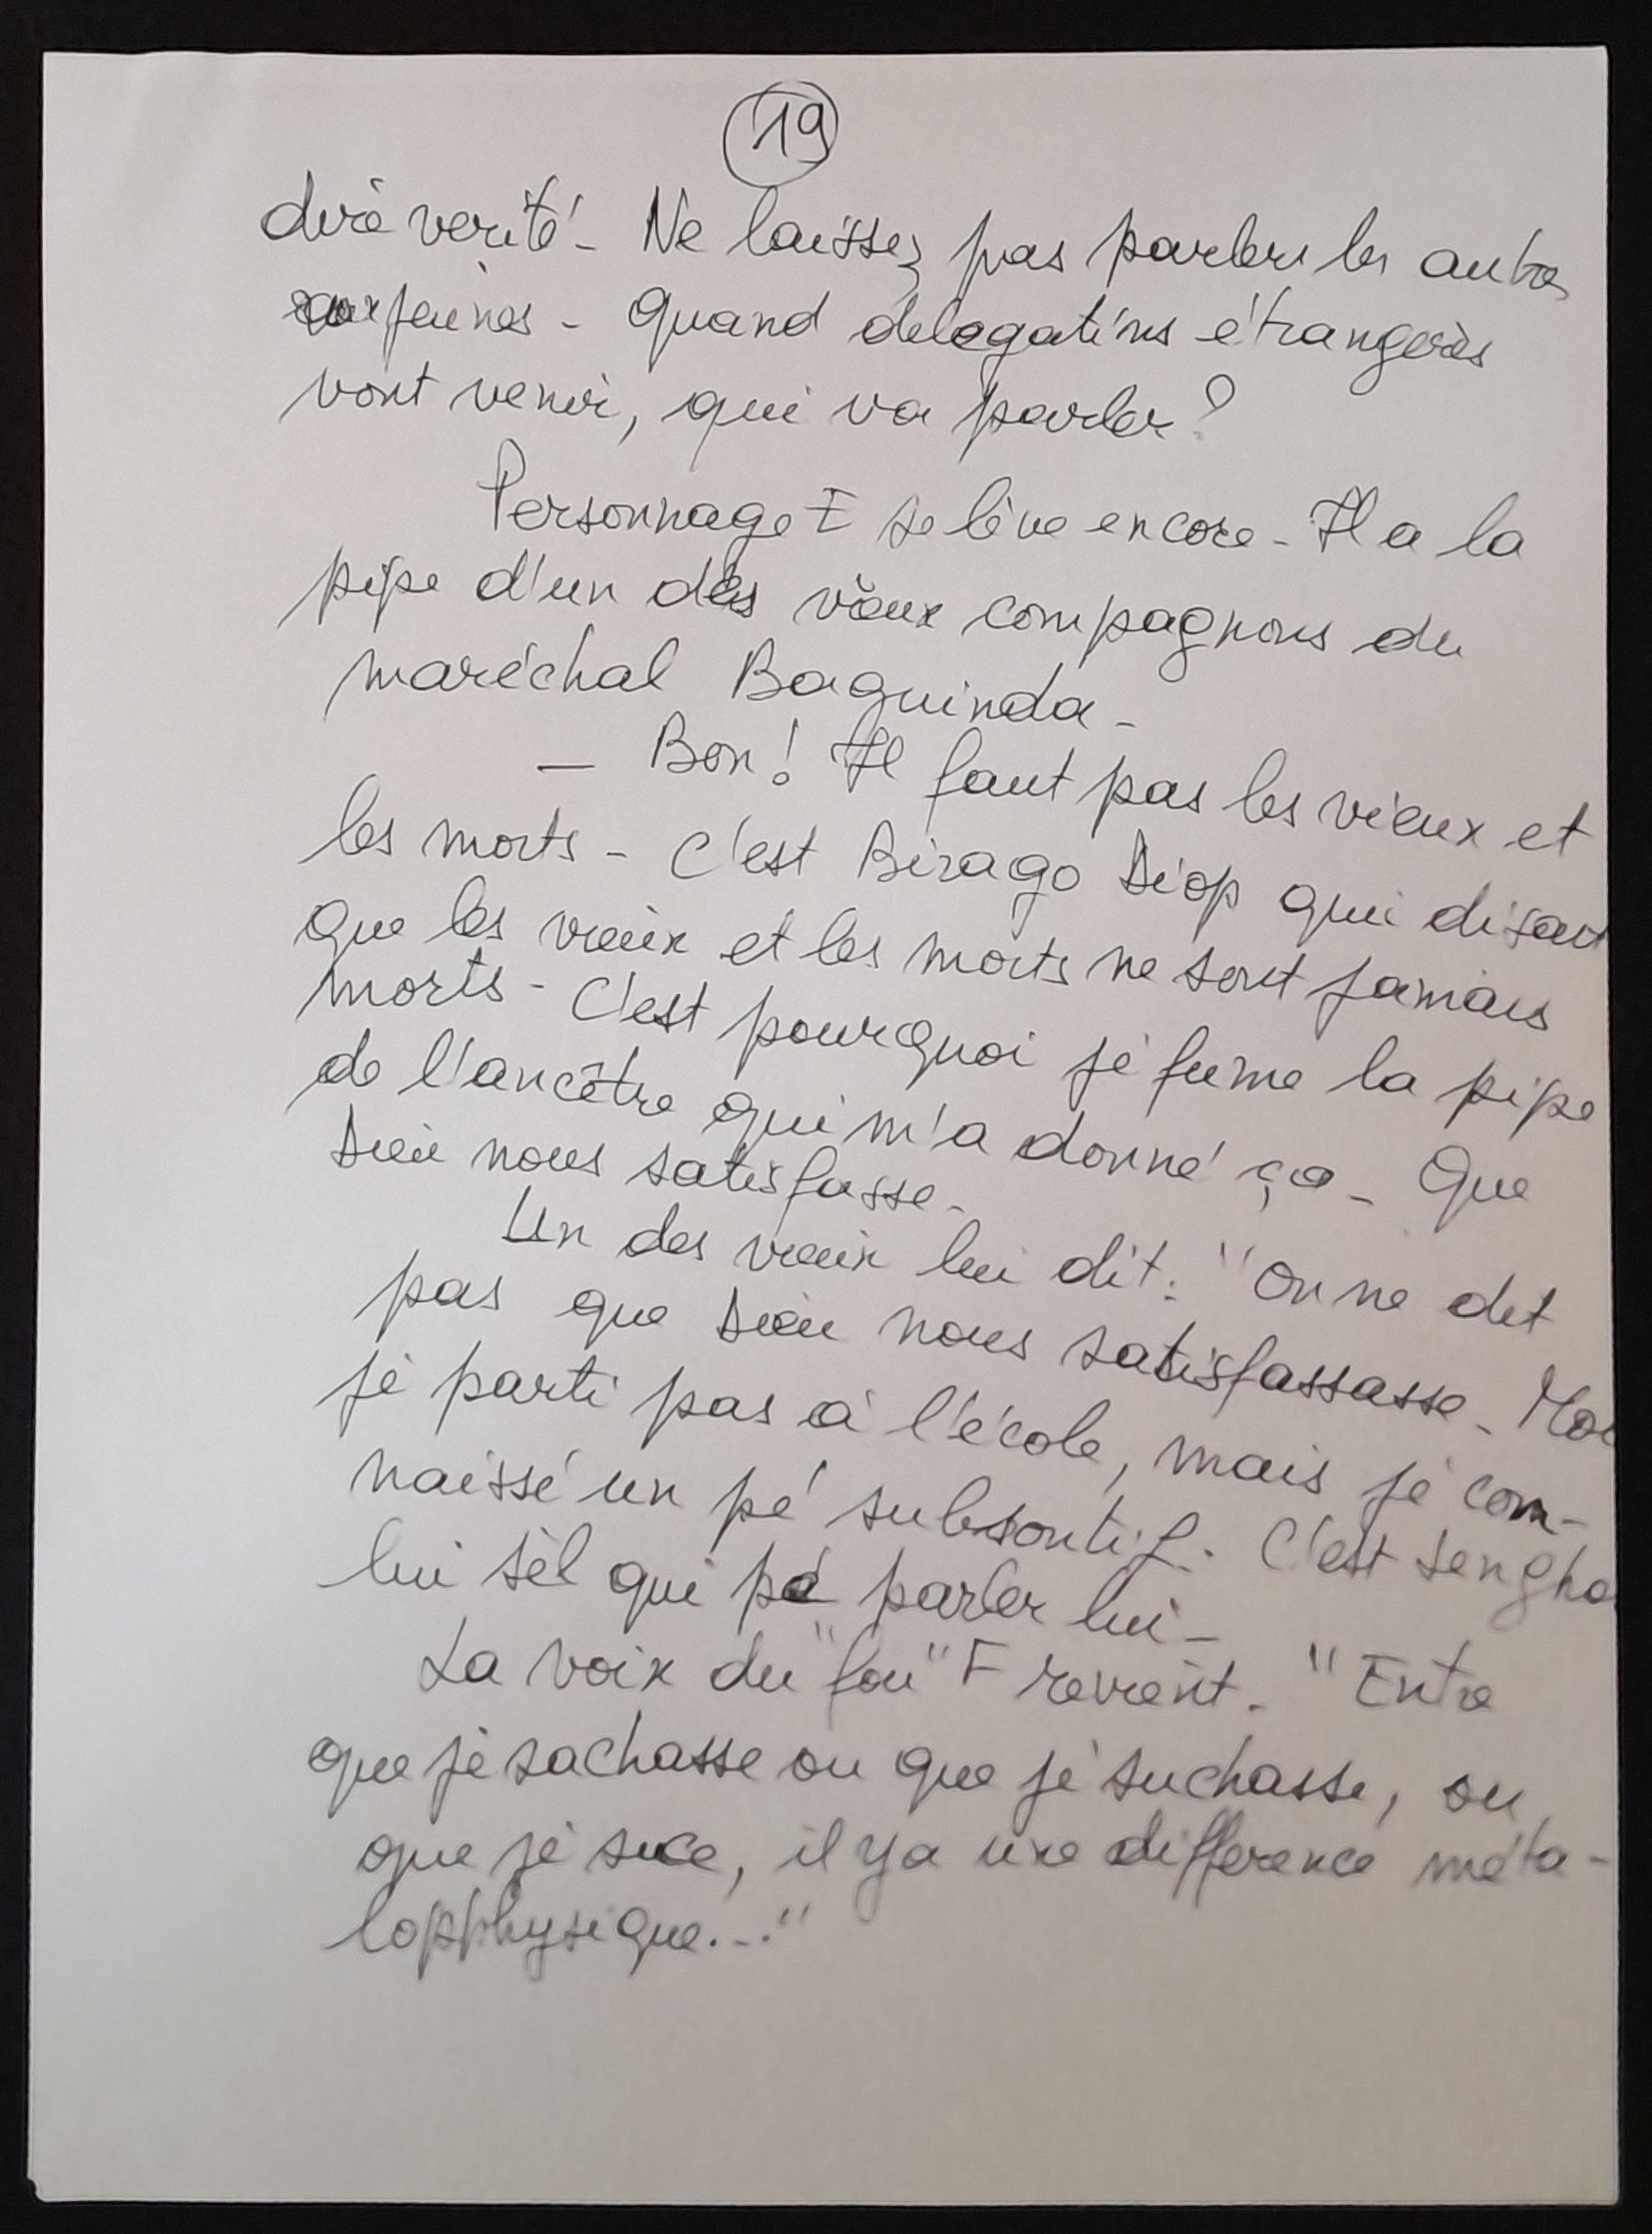 19
dire verité - Ne laissez pas parler les autres
aux jeunes - Quand delegations étrangères
vont venir, qui va parler ?
Personnage F se lève encore - Il a la
pipe d'un des vieux compagnons du
maréchal Baguinda -
- Bon ! Il faut pas les vieux et
les morts - C'est Birago Diop qui disait
que les vieux et les morts ne sont jamais
morts - C'est pourquoi je fume la pipe
de l'ancêtre qui m'a donné ça - Que
Dieu nous satisfasse -
Un des vieux lui dit : "On ne dit
pas que Dieu nous satisfassasse - Moi
jé parti pas à l'école, mais jé con-
naissé un pé subsontif. C'est Sengho
lui sèl qui pé parler lui -
La voix du "fou" F revient. "Entre
que je sachasse ou que je suchasse, ou
que je suce, il y a une différence méta-
lopphysique..."